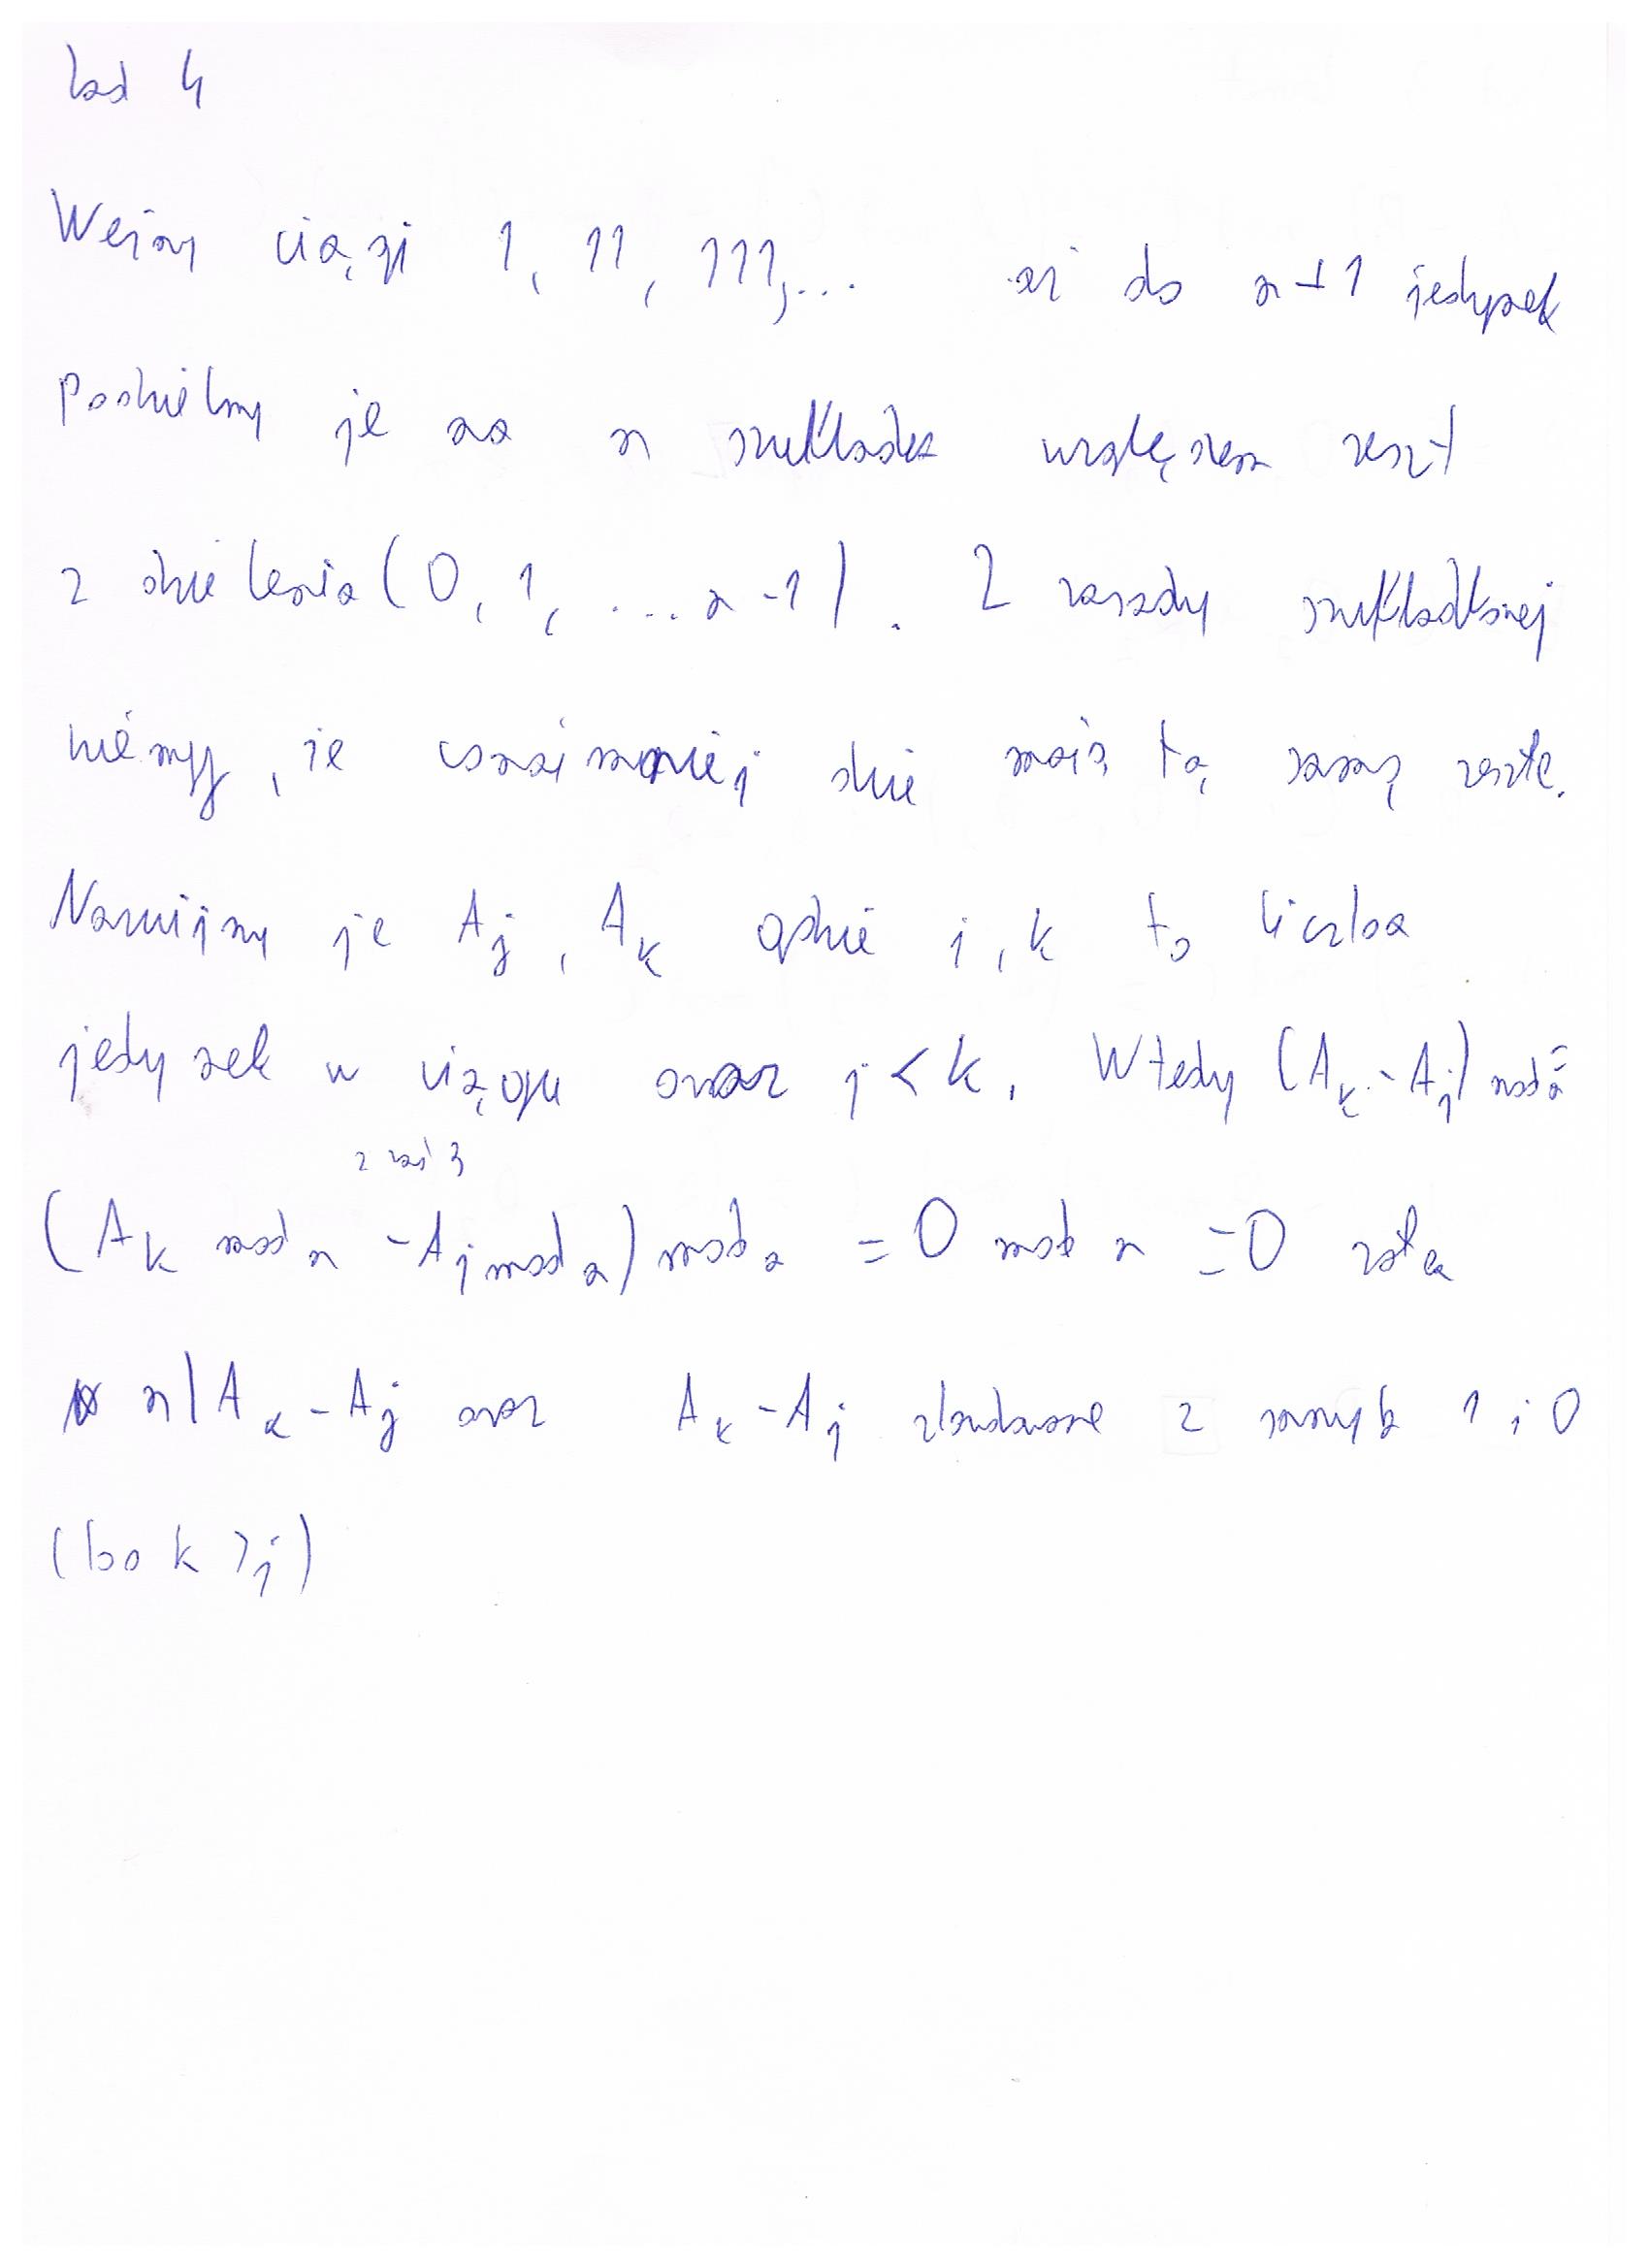 Zad 4
Weźmy ciągi 1, 11, 111,... aż do n+1 jedynek
Podzielmy je na n szufladek względem reszt
z dzielenia (0, 1, ... n-1). Z zasady szufladkowej
wiemy, że conajmniej dwie mają tą samą resztę.
Nazwijmy je Aj, Ak gdzie j, k to liczba
jedynek w ciągu oraz j < k. Wtedy (Ak - Aj) mod n =
z zad 3
(Ak mod n - Aj mod n) mod n = 0 mod n = 0 zatem
n | Ak - Aj oraz Ak - Aj zbudowane z samych 1 i 0
(bo k > j)